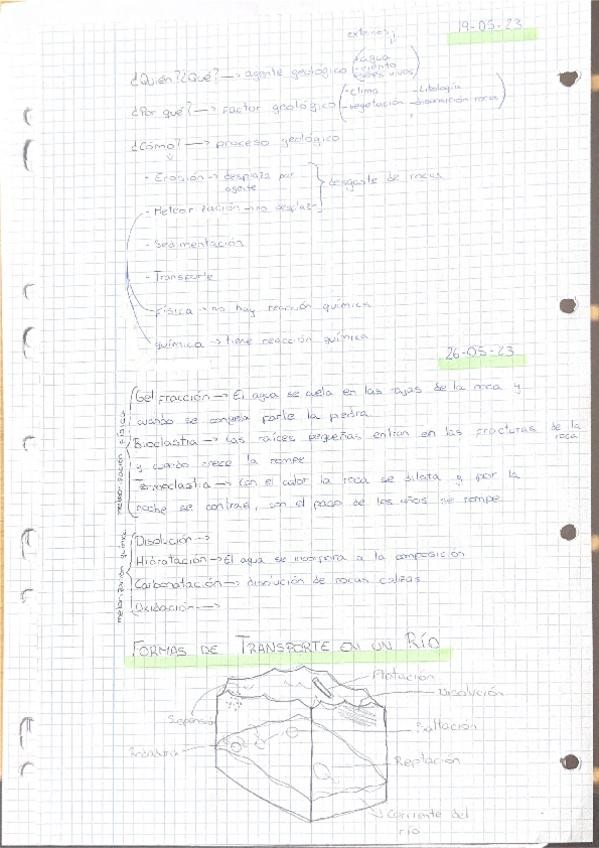 19-05-23
externos
¿Quién?¿Qué? → agente geológico (-agua
-viento
-seres vivos)
¿Por qué? → Factor geológico (-clima -Litología
-vegetación -disposición rocas)
¿Cómo? → proceso geológico
- Erosión → desplaza por
agente
desgaste de rocas
- Meteorización → no desplaz
- Sedimentación
- Transporte
Física → no hay reacción química
química → tiene reacción química
26-05-23
meteorización física
Gelifracción → El agua se cuela en las rajas de la roca y
cuando se congela parte la piedra
Bioclastia → Las raíces pequeñas entran en las fracturas de la
roca
y cuando crece la rompe
Termoclastia → con el calor la roca se dilata y por la
noche se contrae, con el paso de los años se rompe
meteorización química
Disolución →
Hidratación → El agua se incorpora a la composición
Carbonatación → disolución de rocas calizas
Oxidación →
FORMAS DE TRANSPORTE EN UN RÍO
Flotación
Disolución
Suspensió
Saltación
Rodadura
Reptación
Corriente del
río